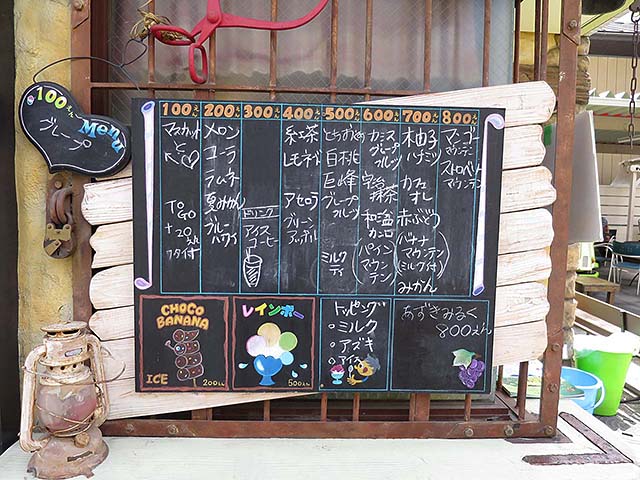 100えん
グレープ
Menu
100えん 200えん 300えん 400えん 500えん 600えん 700えん 800えん
マスカット
と
TO GO
+20えん
フタ付
メロン
コーラ
ラムネ
夏みかん
ブルー
ハワイ
ドリンク
アイス
コーヒー
紅茶
レモネード
アセロラ
グリーン
アップル
白桃
巨峰
グレープ
フルーツ
ミルク
ティ
カシス
グレープ
フルーツ
宇治
抹茶
パイン
マウン
テン
柚子
ハチミツ
カフェ
オレ
赤ぶどう
バナナ
マウンテン
(ミルク付)
みかん
マンゴー
マウンテン
ストロベリー
マウンテン
CHOCO
BANANA
ICE
200えん
レインボー
500えん
トッピング
○ミルク
○アズキ
○アイス
あずきみるく
800えん